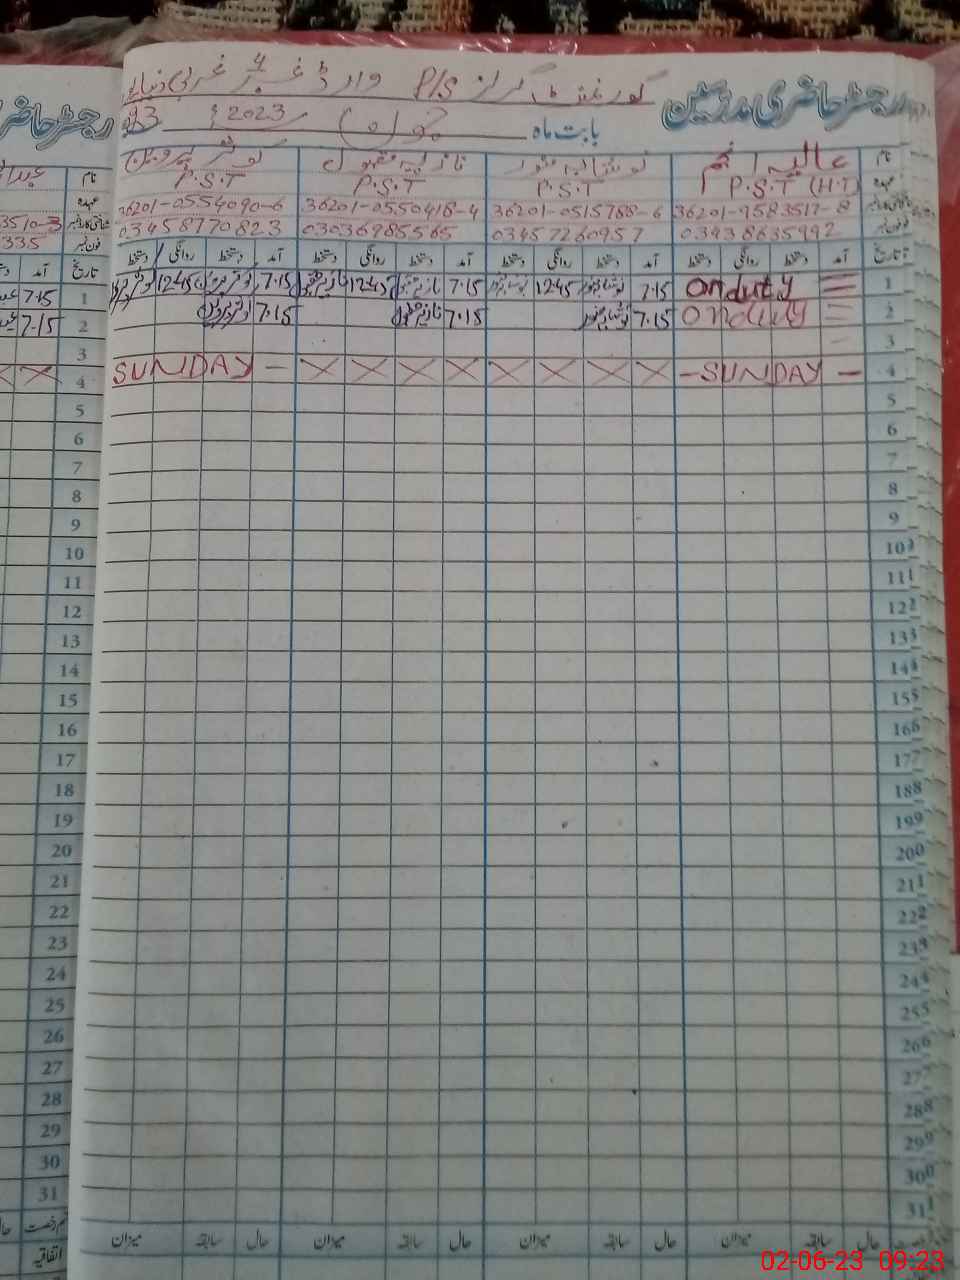 گورنمنٹ گرلز P/S وارڈ نمبر 4 غربی
رجسٹر حاضری مدرسین
بابت ماہ جون 2023ء
نام عالیہ انجم نوشابہ منور نازیہ مقبول کوثر پروین
عہدہ P.S.T (H.T) P.S.T P.S.T P.S.T
شناختی کارڈ نمبر 36201-9583517-8 36201-0515788-6 36201-0550418-4 36201-0554090-6
فون نمبر 03438635992 03457260957 03036985565 03458770823
تاریخ آمد دستخط روانگی دستخط آمد دستخط روانگی دستخط آمد دستخط روانگی دستخط آمد دستخط روانگی دستخط
1 On duty 7.15 12:45 7.15 12:45 7.15 12:45
2 On duty 7.15 7.15 7.15
3
4 - SUNDAY - SUNDAY -
5
6
7
8
9
10
11
12
13
14
15
16
17
18
19
20
21
22
23
24
25
26
27
28
29
30
31
حال سابقہ میزان حال سابقہ میزان حال سابقہ میزان حال سابقہ میزان
رجسٹر حاضر
نام
عہدہ
شناختی کارڈ نمبر 3510-3
فون نمبر 335
تاریخ آمد
1 7.15
2 7.15
3
4
5
6
7
8
9
10
11
12
13
14
15
16
17
18
19
20
21
22
23
24
25
26
27
28
29
30
31
قسم رخصت
اتفاقیہ
02-06-23 09:23